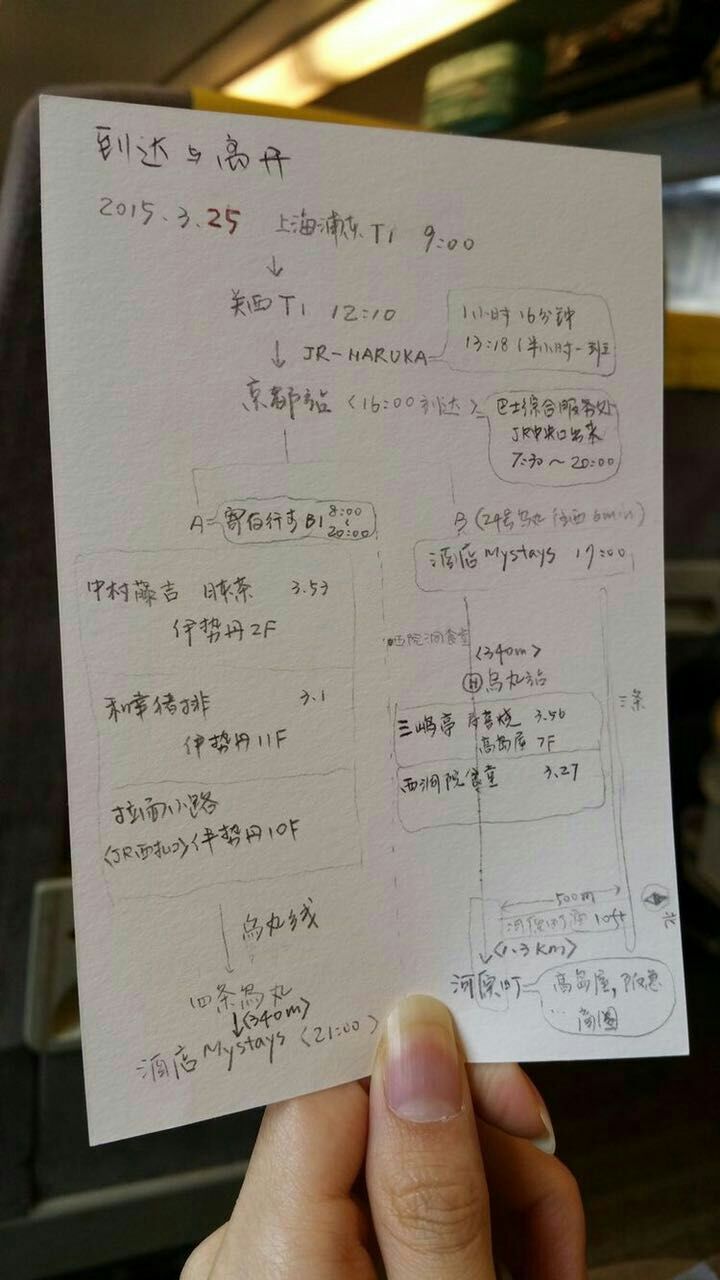 到达与离开
2015.3.25 上海浦东T1 9:00
↓
关西T1 12:10
↓ JR-HARUKA
1小时16分钟
13:18(半小时一班
京都站 <16:00到达>
巴士综合服务处
JR中央口出来
7:30~20:00
A= 寄存行李B1 8:00
20:00
中村藤吉 日本茶 3.53
伊势丹2F
和幸猪排 3.1
伊势丹11F
拉面小路
<JR西扎口>伊势丹10F
乌丸线
四条乌丸
↓<340m>
酒店Mystays <21:00>
B(24号乌丸 往西6min)
酒店Mystays 17:00
西院洞食堂
<340m>
H 乌丸站
三嶋亭 寿喜烧 3.56
高岛屋 7F
西洞院食堂 3.27
三条
500m
loft
北
<1.3km>
河原町
高岛屋,阪急
商圈